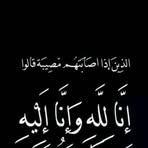 الذين إذا أصابتهم مصيبة قالوا
إنا لله وإنا إليه